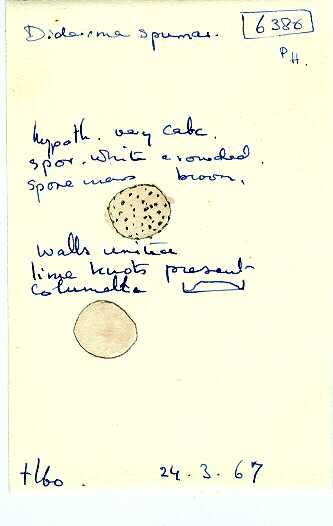 Diderma spumar.
6386
PH.
hypoth. very calc.
spor. white crowded.
spore mass brown.
walls united
lime knots present
Columella
24.3.67